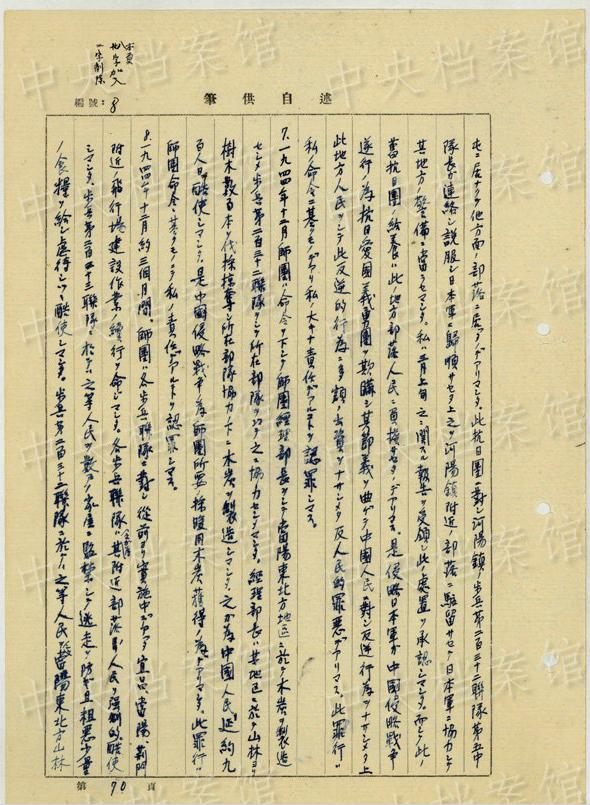 述自供筆
編號:8
本頁
廿字加入
一字削除
屯ニ居ナクテ他方面ノ部落ニ居ッタノデアリマシタ。此抗日團ニ對シ河陽鎮ノ歩兵第二百三十二聯隊第五中
隊長ガ連絡シ説服シ日本軍ニ歸順サセタ上之ヲ河陽鎮附近ノ部落ニ駐留サセテ日本軍ニ協力シテ
其地方ノ警備ニ當ラセマシタ。私ハ三月上旬之ニ關スル報告ヲ受領シ此ノ處置ヲ承認シマシタ。而シテ此ノ
舊抗日團ノ給養ハ此地方部落人民ニ負擔サセタノデアリマス。是侵略日本軍ガ中國侵略戰爭
遂行ノ為抗日愛國義勇團ヲ欺瞞シ其節義ヲ曲ゲテ中國人民ニ對シ反逆行為ヲナサシメタ上
此地方人民ヲシテ此反逆的行為ニ多額ノ出資ヲナサシメタ反人民的罪惡デアリマス。此罪行ハ
私ノ命令ニ基クモノデアリ私ノ大ナル責任デアルト認罪シマス。
7.一九四四年十二月師團ハ命令ヲ下シテ師團經理部長ヲシテ當陽東北方地區ニ於テ木炭ヲ製造
セシメ歩兵第二百三十二聯隊ヲシテ所在部隊ヲシテ之ニ協力セシメマシタ。經理部長ハ其地區ニ於テ山林ヨリ
樹木數百本ヲ伐採掠奪シ所在部隊協力ノ下ニ木炭ヲ製造シマシタ。之ガ為中國人民延約九
百人日ヲ酷使シマシタ。是中國侵略戰爭ノ為師團所要採暖用木炭獲得ノ為デアリマシタ。此罪行ハ
師團命令ニ基クモノデアリ私ノ責任デアルト認罪シマス。
8.一九四四年十二月約三個月間、師團ハ各歩兵聯隊ニ對シ從前ヨリ實施中デアッタ宜昌、當陽、荊門
附近ノ飛行場建設作業ノ續行ヲ命ジマシタ。各歩兵聯隊ハ其附近部落ヨリ人民ヲ強制的ニ酷使
シマシタ。歩兵第二百三十三聯隊ニ於テハ之等人民ヲ數戸ノ家屋ニ監禁シテ逃走ヲ防ギ且粗惡少量
ノ食糧ヲ給シ虐待シツツ酷使シマシタ。歩兵第二百三十二聯隊ニ於テハ之等人民ヲ當陽東北方山林
第 70 頁
中央档案馆